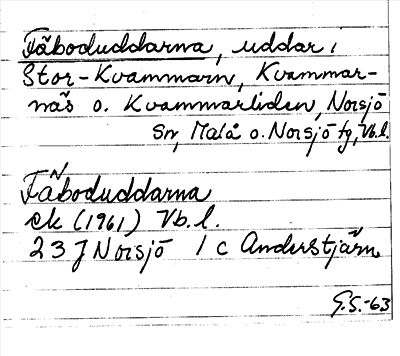 Fäboduddarna, uddar i
Stor-Kvammarn, Kvammar-
näs o. Kvammarliden, Norsjö
sn, Malå o. Norsjö tg, Vb.l.
Fäboduddarna
ek (1961) Vb.l.
23 J Norsjö 1 c Anderstjärn
G.S.-63